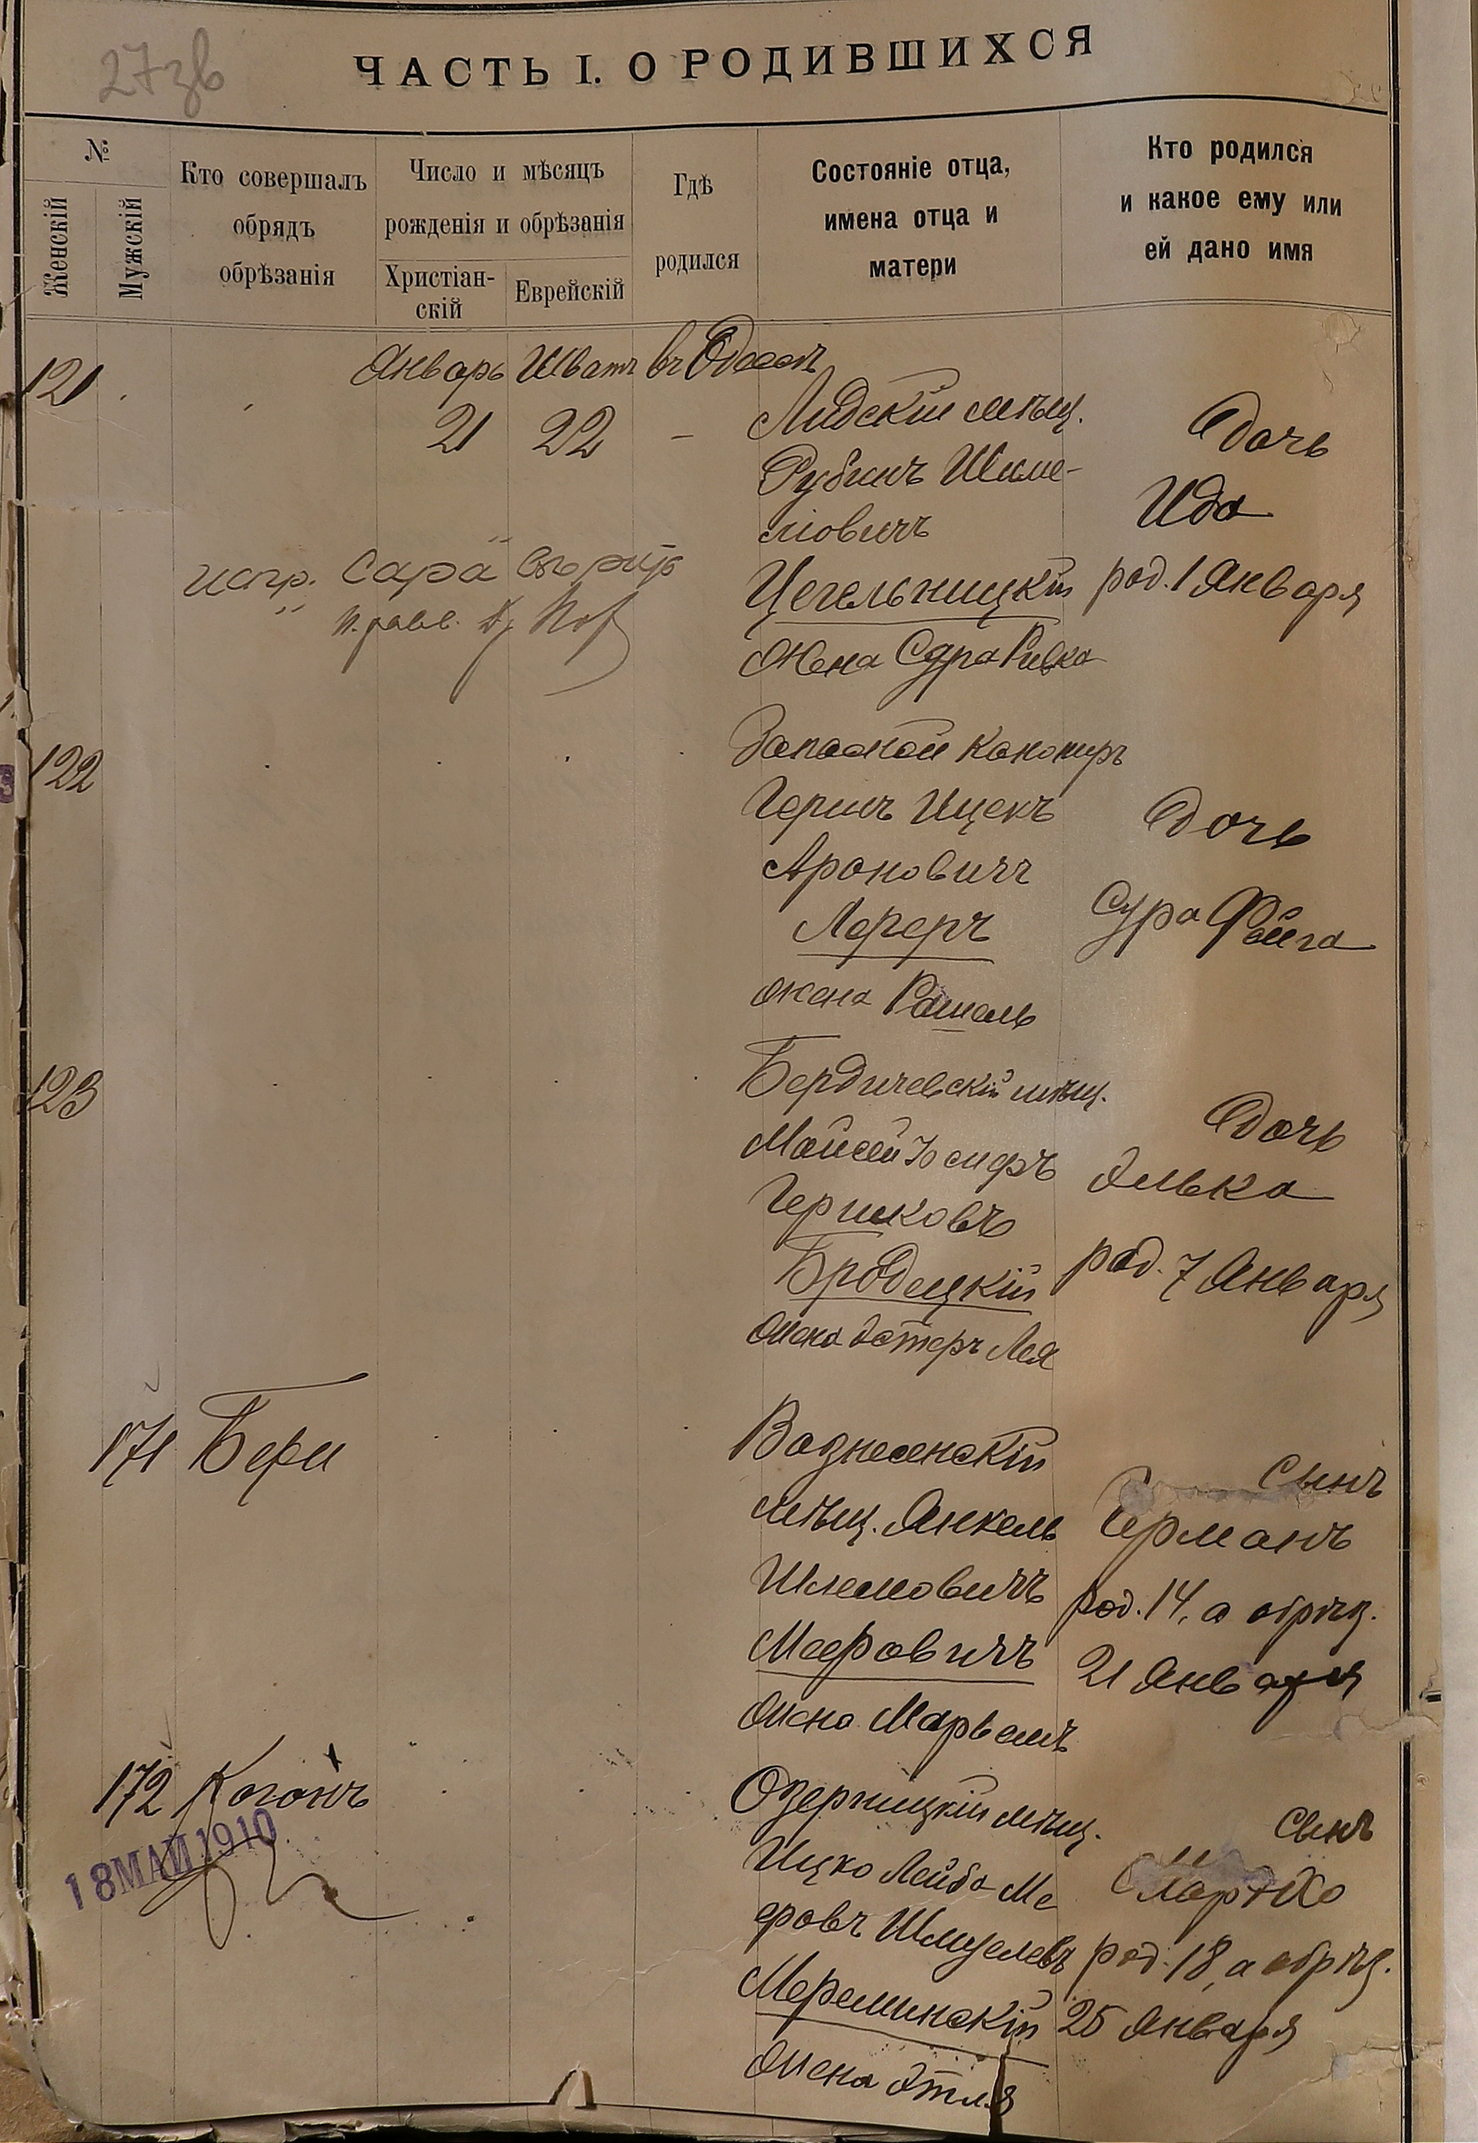 27зв
ЧАСТЬ I. О РОДИВШИХСЯ
№
Женскій
Мужскій
Кто совершалъ
обрядъ
обрѣзанія
Число и мѣсяцъ
рожденія и обрѣзанія
Христіан-
скій
Еврейскій
Гдѣ
родился
Состояніе отца,
имена отца и
матери
Кто родился
и какое ему или
ей дано имя
Январь Шватъ въ Одессѣ
121
21 22 —
Лидскій мѣщ.
Рубинъ Шмме-
ліовичъ
Цегельницкій
жена Сура Ривка
Дочь
Ида
род. 1 Января
испр. "Сара" вѣрить
122
Запасной канониръ
Гершъ Ицекъ
Ароновичъ
Лереръ
жена Рашель
Дочь
Сура Фейга
123
Бердичевскій мѣщ.
Мойсей Іосифъ
Гершковъ
Бродецкій
жена Эстеръ Лея
Дочь
Элька
род. 7 Января
171 Бери
Вознесенскій
мѣщ. Янкель
Шлемовичъ
Мееровичъ
жена Марьемъ
Сынъ
Германъ
род. 14, а обрѣз.
21 Января
172 Коганъ
18 МАЙ 1910
Озерницкій мѣщ.
Ицко Лейба Ме
еровъ Шмулевъ
Мереминскій
жена Этля
Сынъ
Мордко
род. 18, а обрѣз.
25 Января